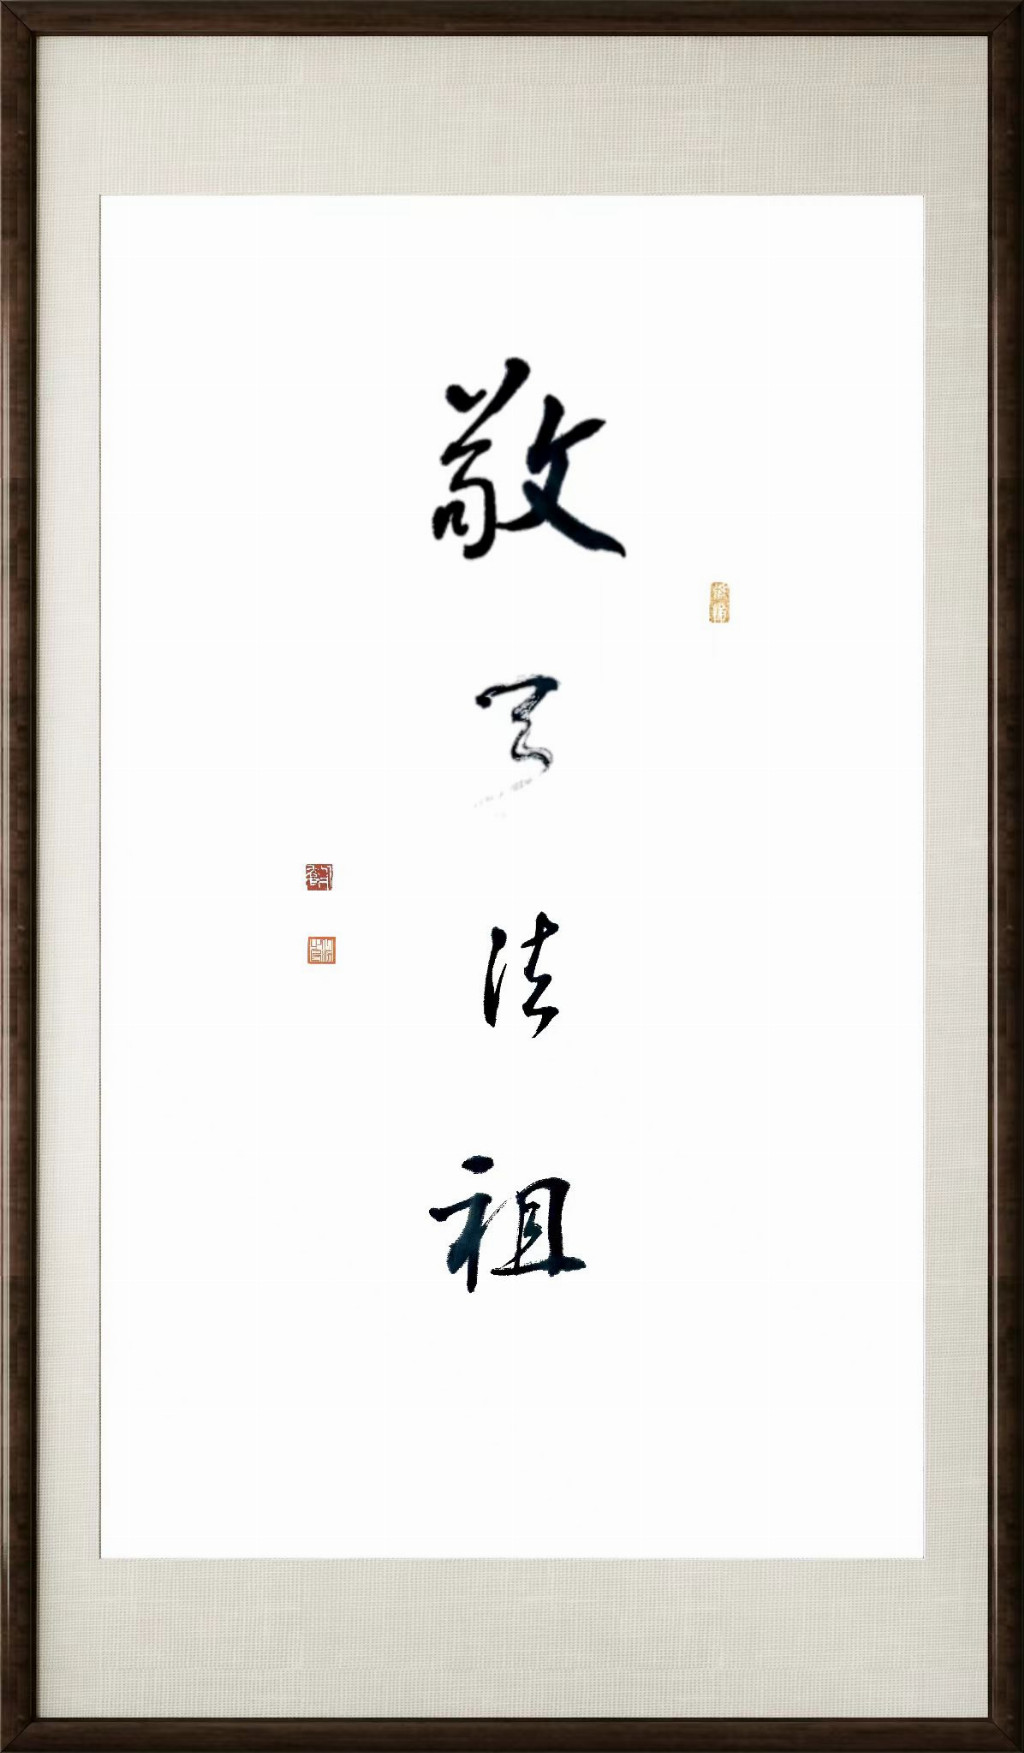 敬天法祖